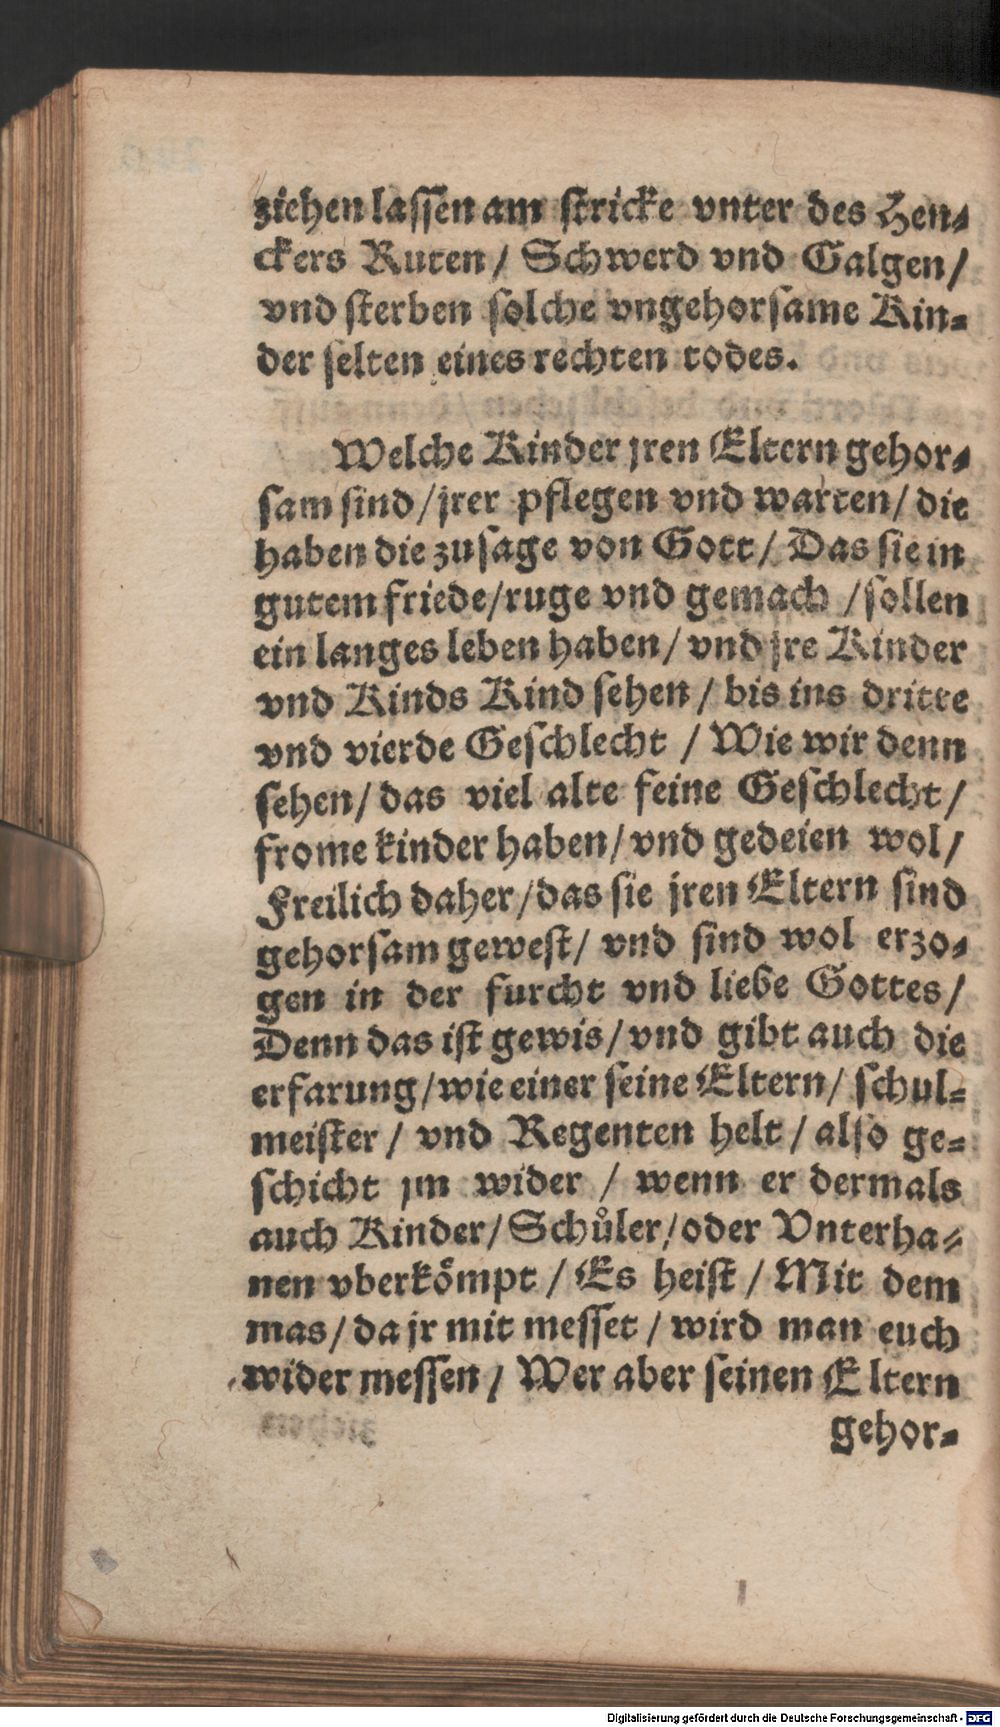 ziehen lassen am stricke vnter des Hen⸗
ckers Ruten / Schwerd vnd Galgen /
vnd sterben solche vngehorsame Kin⸗
der selten eines rechten todes.
Welche Kinder jren Eltern gehor⸗
sam sind / jrer pflegen vnd warten / die
haben die zusage von Gott / Das sie in
gutem friede / ruge vnd gemach / sollen
ein langes leben haben / vnd jre Kinder
vnd Kinds Kind sehen / bis ins dritte
vnd vierde Geschlecht / Wie wir denn
sehen / das viel alte feine Geschlecht /
frome kinder haben / vnd gedeien wol /
Freilich daher / das sie jren Eltern sind
gehorsam gewest / vnd sind wol erzo⸗
gen in der furcht vnd liebe Gottes /
Denn das ist gewis / vnd gibt auch die
erfarung / wie einer seine Eltern / schul⸗
meister / vnd Regenten helt / also ge⸗
schicht jm wider / wenn er dermals
auch Kinder / Schuͤler / oder Vnterha⸗
nen vberkoͤmpt / Es heist / Mit dem
mas / da jr mit messet / wird man euch
wider messen / Wer aber seinen Eltern
gehor⸗
Digitalisierung gefördert durch die Deutsche Forschungsgemeinschaft - DFG